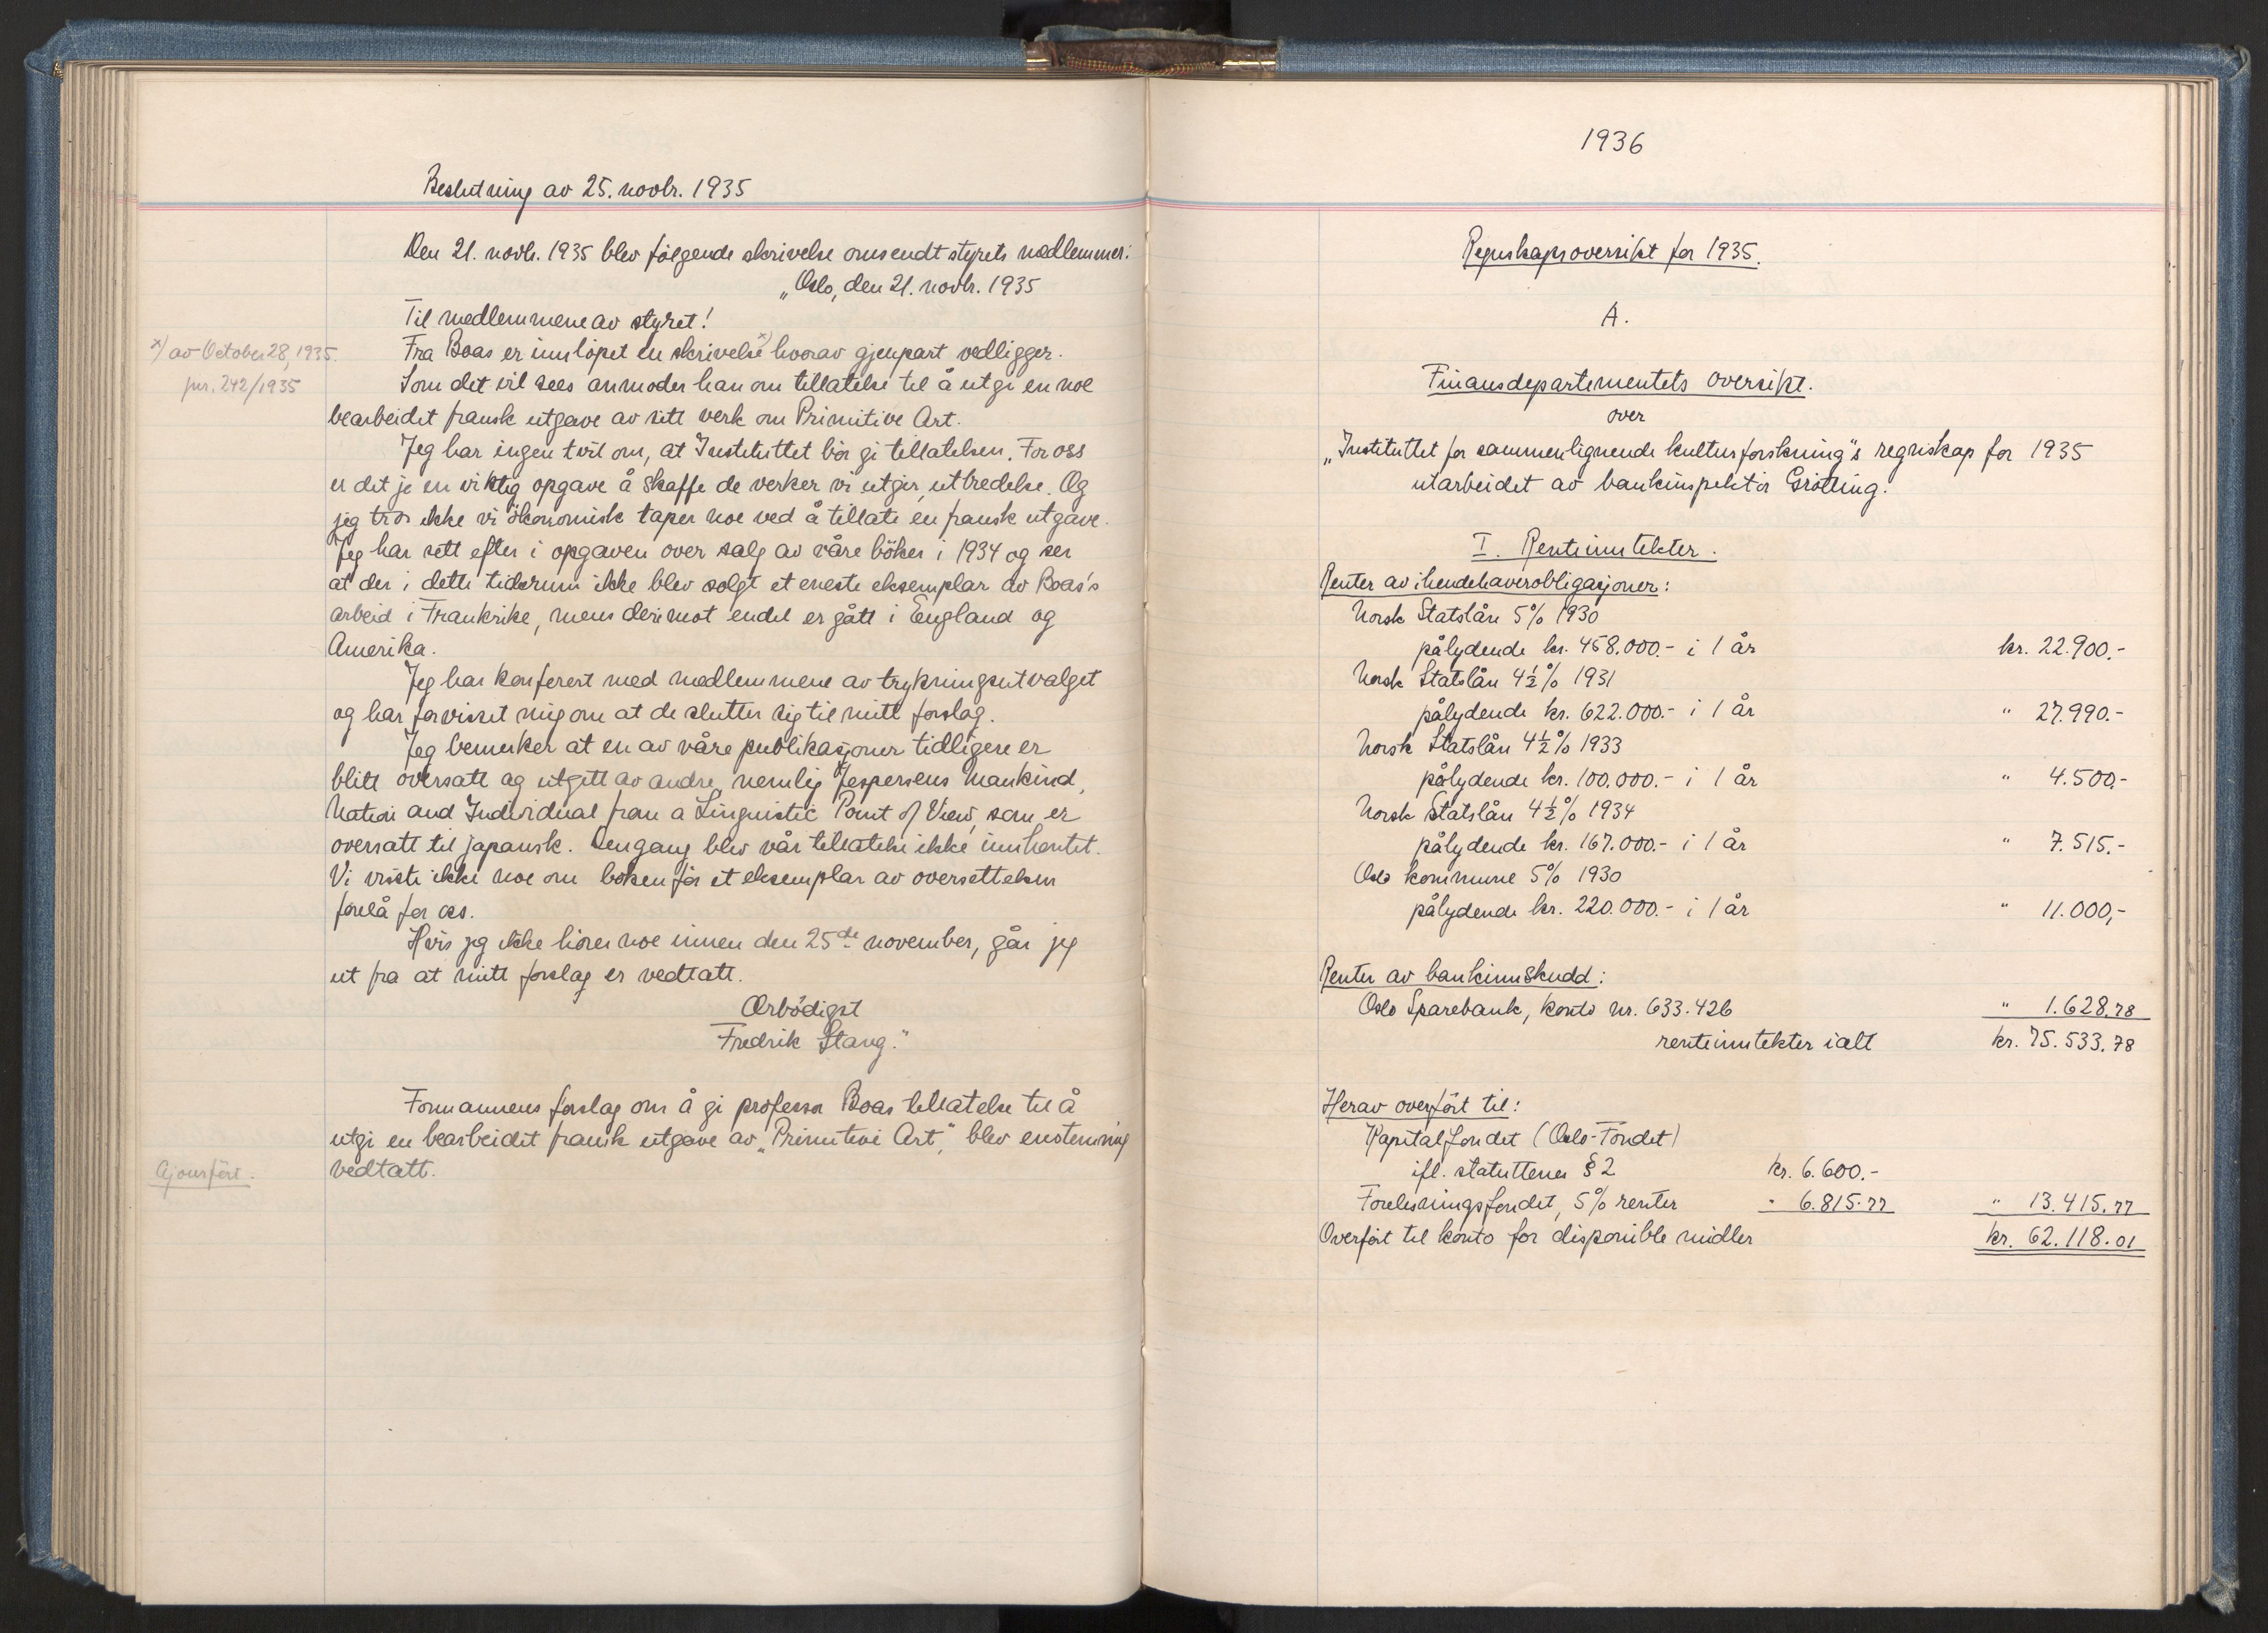 Beslutning av 25. novbr. 1935
Den 21. novbr. 1935 blev følgende skrivelse omsendt styrets medlemmer:
„Oslo, den 21. novbr. 1935
Til medlemmene av styret!
x) av October 28, 1935.
jnr. 242/1935
Fra Boas er innløpet en skrivelse x) hvorav gjenpart vedligger.
Som det vil sees anmoder han om tillatelse til å utgi en noe
bearbeidet fransk utgave av sitt verk om Primitive Art.
Jeg har ingen tvil om, at Instituttet bør gi tillatelsen. For oss
er det jo en viktig opgave å skaffe de verker vi utgir, utbredelse. Og
jeg tror ikke vi økonomisk taper noe ved å tillate en fransk utgave.
Jeg har sett efter i opgaven over salg av våre bøker i 1934 og ser
at der i dette tidsrum ikke blev solgt et eneste eksemplar av Boas's
arbeid i Frankrike, mens derimot endel er gått i England og
Amerika.
Jeg har konferert med medlemmene av trykningsutvalget
og har forvisset mig om at de slutter sig til mitt forslag.
Jeg bemerker at en av våre publikasjoner tidligere er
blitt oversatt og utgitt av andre, nemlig Jespersens Mankind,
Nation and Individual from a Linguistic Point of View, som er
oversatt til japansk. Dengang blev vår tillatelse ikke innhentet.
Vi visste ikke noe om boken før et eksemplar av oversettelsen
forelå for oss.
Hvis jeg ikke hører noe innen den 25de november, går jeg
ut fra at mitt forslag er vedtatt.
Ærbödigst
Fredrik Stang."
Formannens forslag om å gi professor Boas tillatelse til å
utgi en bearbeidet fransk utgave av „Primitive Art", blev enstemmig
vedtatt.
Ajourført.
1936
Regnskapsoversikt for 1935.
A.
Finansdepartementets oversikt.
over
„Instituttet for sammenlignende kulturforskning"s regnskap for 1935
utarbeidet av bankinspektør Grötting.
I. Renteinntekter.
Renter av ihendehaverobligasjoner:
Norsk Statslån 5% 1930
pålydende kr. 458.000.- i 1 år kr. 22.900.-
Norsk Statslån 4½% 1931
pålydende kr. 622.000.- i 1 år " 27.990.-
Norsk Statslån 4½% 1933
pålydende kr. 100.000.- i 1 år " 4.500.-
Norsk Statslån 4½% 1934
pålydende kr. 167.000.- i 1 år " 7.515.-
Oslo kommune 5% 1930
pålydende kr. 220.000.- i 1 år " 11.000,-
Renter av bankinnskudd:
Oslo Sparebank, konto nr. 633.426 " 1.628.78
renteinntekter ialt kr. 75.533.78
Herav overfört til:
Kapitalfondet (Oslo-Fondet)
ifl. statuttenes § 2 kr. 6.600.-
Forelesningsfondet, 5% renter " 6.815.77 " 13.415.77
Overfört til konto for disponible midler kr. 62.118.01